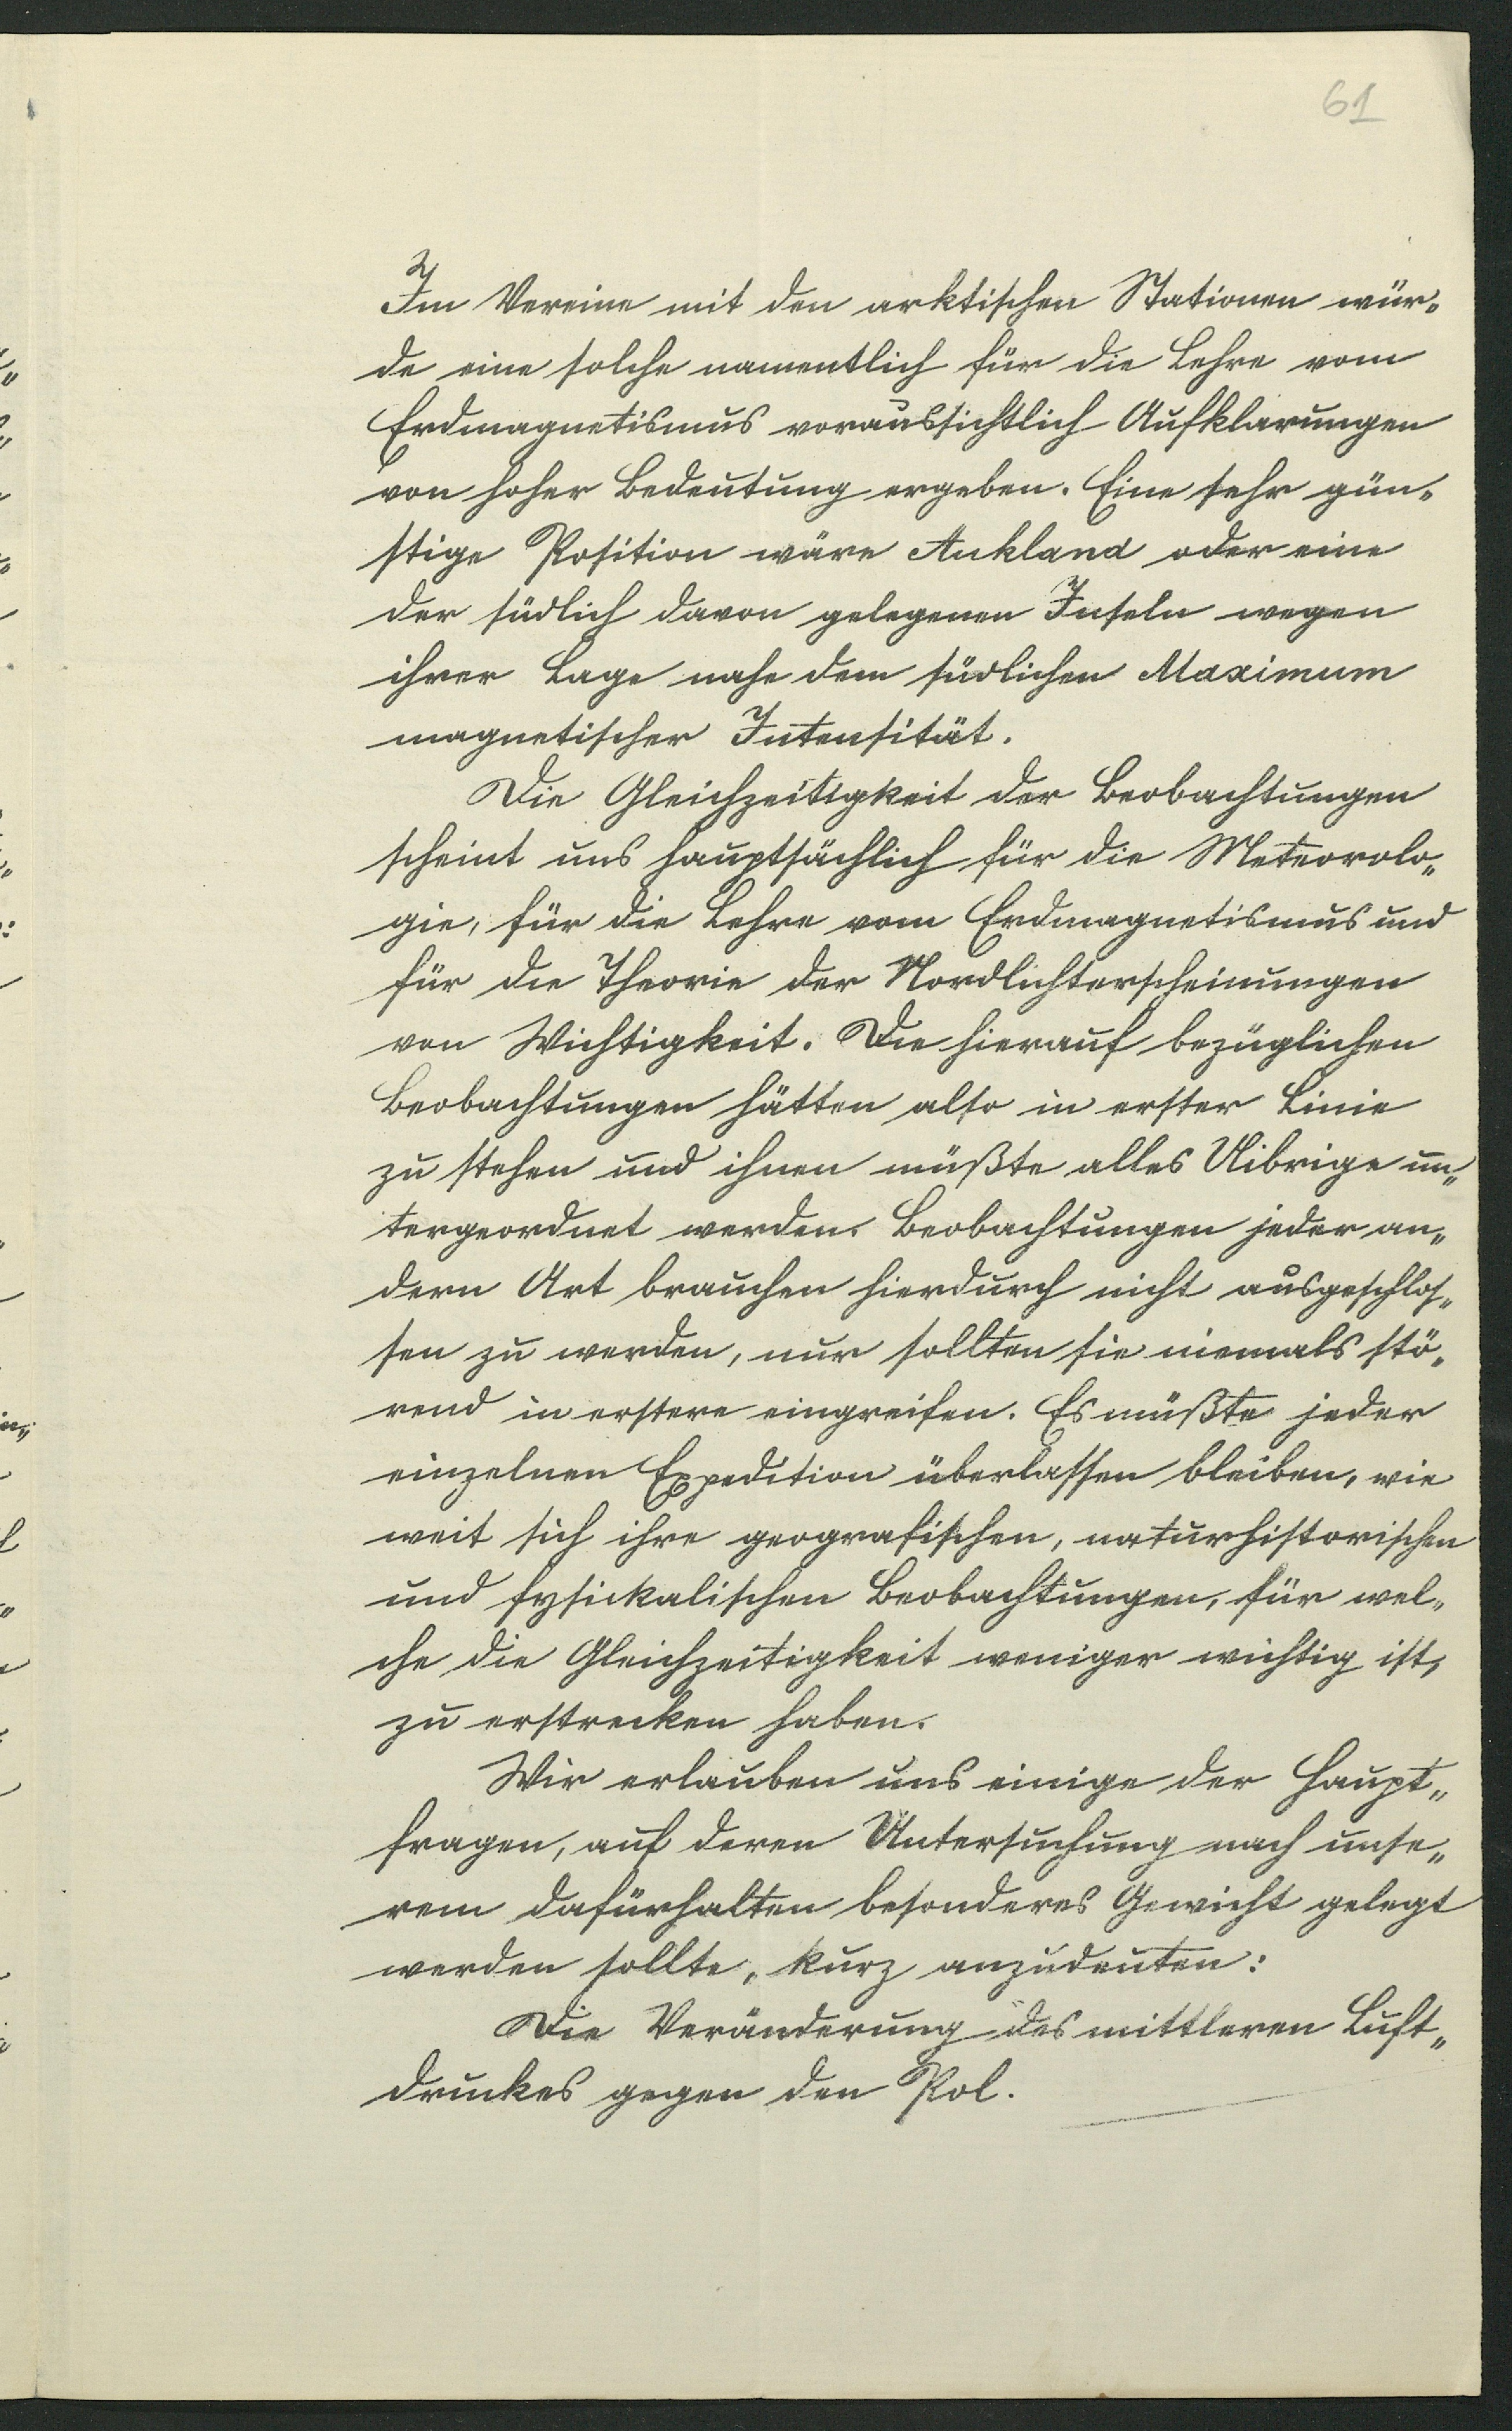 61
Im Vereine mit den arktischen Stationen wür„
de eine solche namentlich für die Lehre vom
Erdmagnetismus voraussichtlich Aufklarungen
von hoher Bedeutung ergeben. Eine sehr gün„
stige Position wäre Aukland oder eine
der südlich davon gelegenen Inseln wegen
ihrer Lage nahe dem südlichen Maximum
magnetischer Intensität.
Die Gleichzeitigkeit der Beobachtungen
scheint uns hauptsächlich für die Meteorolo„
gie, für die Lehre vom Erdmagnetismus und
für die Theorie der Nordlichterscheinungen
von Wichtigkeit. Die hierauf bezüglichen
Beobachtungen hätten also in erster Linie
zu stehen und ihnen müßte alles Uibrige un„
tergeordnet werden. Beobachtungen jeder an„
dern Art brauchen hierdurch nicht ausgeschlos„
sen zu werden, nur sollten sie niemals stö„
rend in erstere eingreifen. Es müßte jeder
einzelnen Expedition überlassen bleiben, wie
weit sich ihre geografischen, naturhistorischen
und fysickalischen Beobachtungen, für wel„
che die Gleichzeitigkeit weniger wichtig ist,
zu erstrecken haben.
Wir erlauben uns einige der Haupt„
fragen, auf deren Untersuchung nach unse„
rem dafürhalten besonderes Gewicht gelegt
werden sollte, kurz anzudeuten:
Die Veränderung des mittleren Luft„
druckes gegen den Pol.